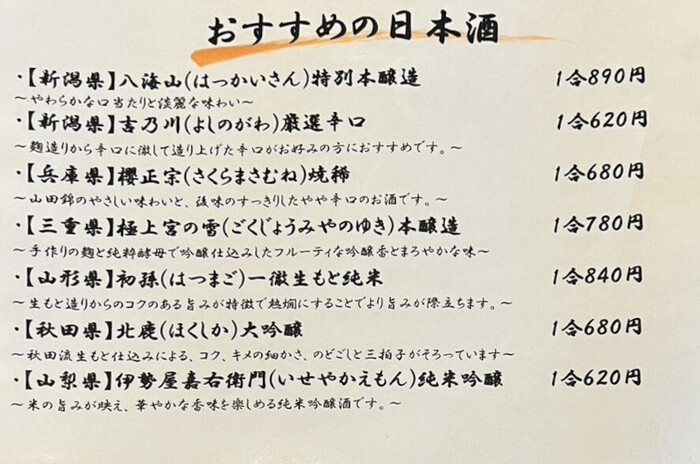 おすすめの日本酒
・【新潟県】八海山(はっかいさん)特別本醸造 1合890円
～やわらかな口当たりと淡麗な味わい～
・【新潟県】吉乃川(よしのがわ)厳選辛口 1合620円
～麹造りから辛口に徹して造り上げた辛口がお好みの方におすすめです。～
・【兵庫県】櫻正宗(さくらまさむね)焼稀 1合680円
～山田錦のやさしい味わいと、後味のすっきりしたやや辛口のお酒です。～
・【三重県】極上宮の雪(ごくじょうみやのゆき)本醸造 1合780円
～手作りの麹と純粋酵母で吟醸仕込みしたフルーティな吟醸香とまろやかな味～
・【山形県】初孫(はつまご)一徹生もと純米 1合840円
～生もと造りからのコクのある旨みが特徴で熱燗にすることでより旨みが際立ちます。～
・【秋田県】北鹿(ほくしか)大吟醸 1合680円
～秋田流生もと仕込みによる、コク、キメの細かさ、のどごしと三拍子がそろっています～
・【山梨県】伊勢屋嘉右衛門(いせやかえもん)純米吟醸 1合620円
～米の旨みが映え、華やかな香味を楽しめる純米吟醸酒です。～